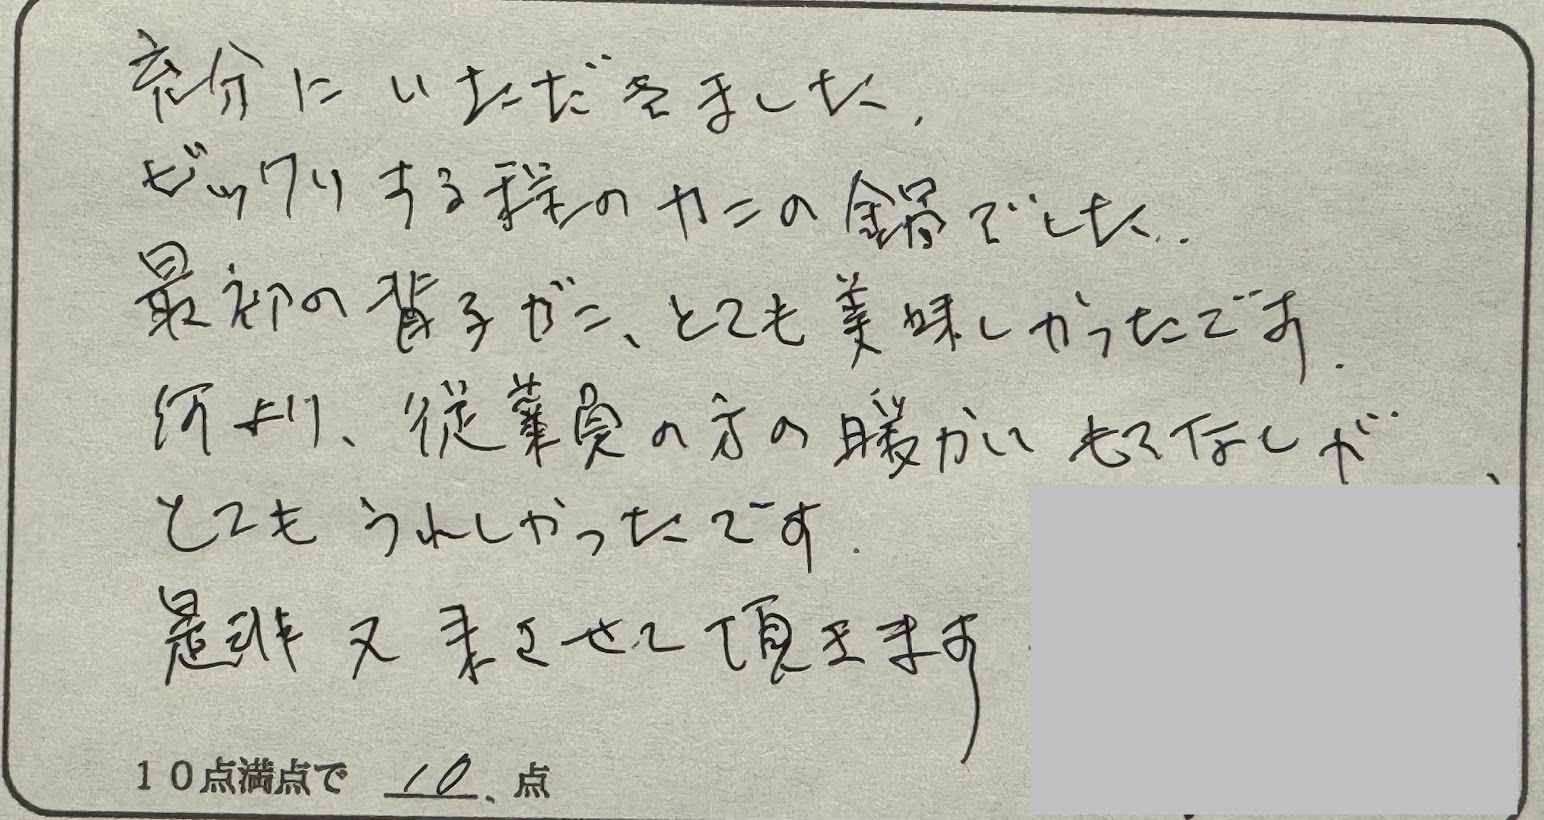 充分にいただきました.
ビックリする程のカニの鍋でした.
最初の背子ガニ、とても美味しかったです.
何より、従業員の方の暖かいもてなしが
とてもうれしかったです.
是非又来させて頂きます
10点満点で 10.点